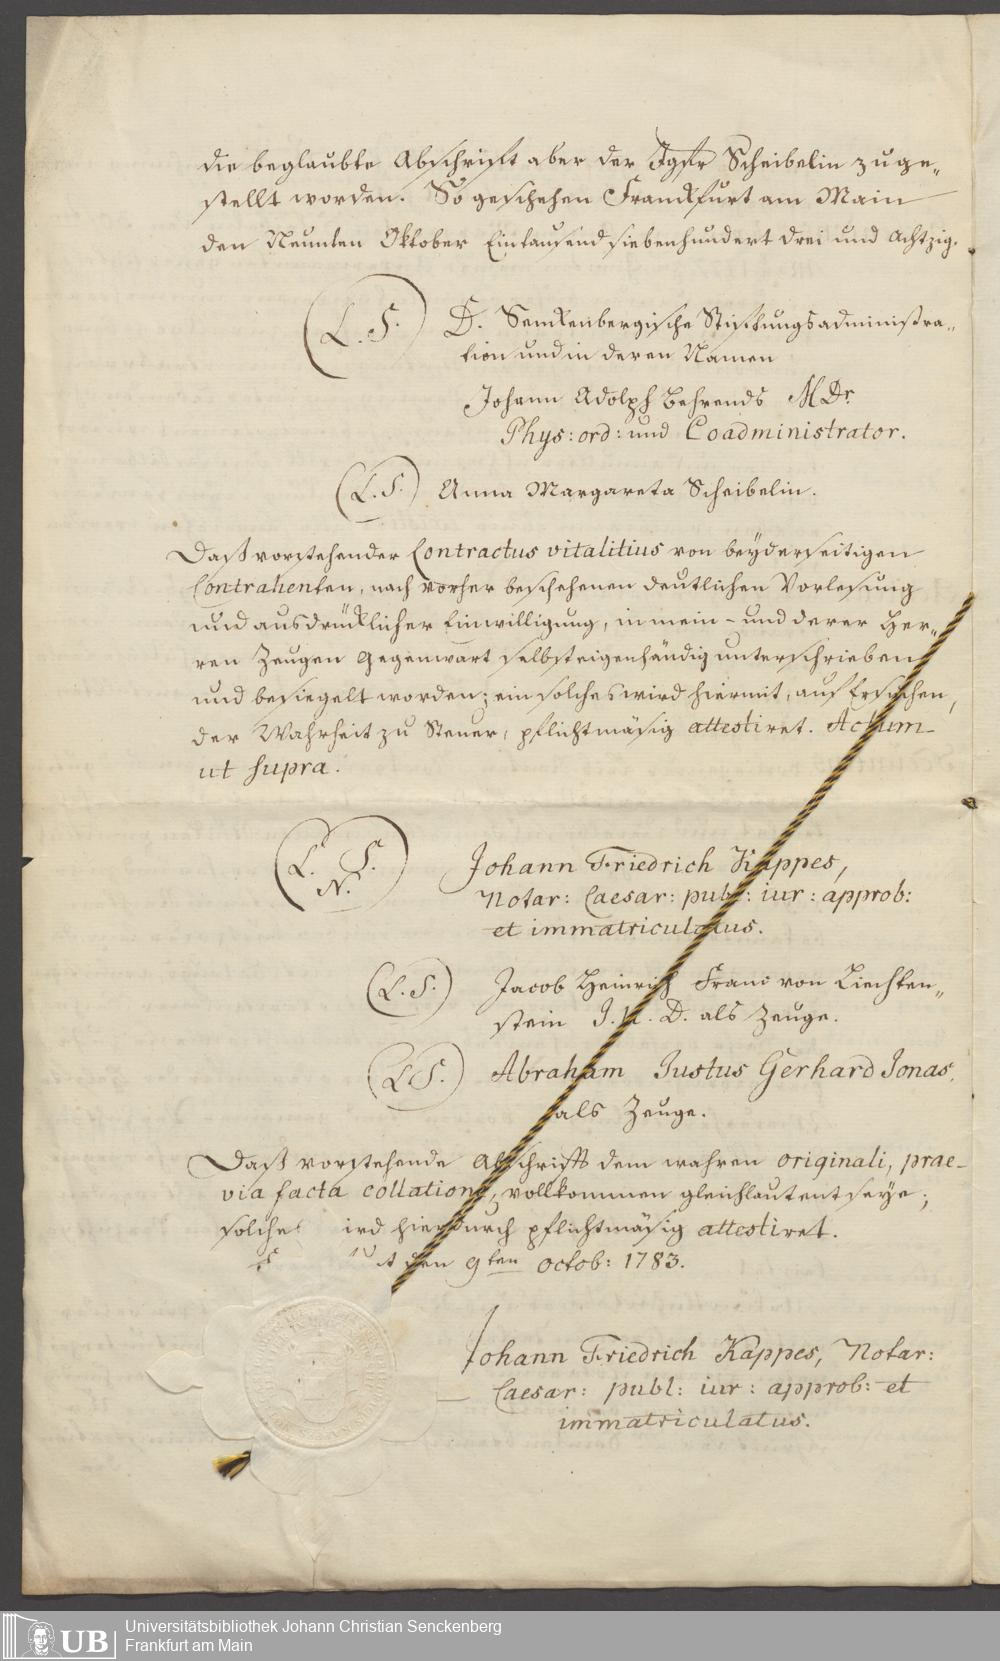 die beglaubte Abschrift aber der Jgfr Scheibelin zuge„
stellt worden. So geschehen Franckfurt am Main
den Neunten Oktober Eintausend siebenhundert drei und Achtzig.
(L. S.) D. Senckenbergische Stiftungsadministra„
tion und in deren Namen
Johann Adolph Behrends M Dr.
Phys: ord: und Coadministrator.
(L. S.) Anna Margareta Scheibelin.
Daß vorstehender Contractus vitalitius von beÿderseitigen
Contrahenten, nach vorher beschehenen deutlichen Vorlesung
und ausdrücklicher Einwilligung, in mein- und derer Her„
ren Zeugen Gegenwart selbsteigenhändig unterschrieben
und besiegelt worden; ein solches wird hiermit, auf Ersuchen,
der Wahrheit zu Steuer, pflichtmäsig attestiret. Actum
ut supra.
(L. S. N.) Johann Friedrich Kappes,
Notar: Caesar: publ: iur: approb:
et immatriculatus.
(L. S.) Jacob Heinrich Franc von Liechten„
stein J. U. D. als Zeuge.
(L. S.) Abraham Justus Gerhard Jonas,
als Zeuge.
Daß vorstehende Abschrift dem wahren originali, prae-
via facta collatione, vollkommen gleichlautent seye;
solche ird hierdurch pflichtmäsig attestiret.
den 9ten octob: 1783.
Johann Friedrich Kappes, Notar:
Caesar: publ: iur: approb: et
immatriculatus.
UB
Universitätsbibliothek Johann Christian Senckenberg
Frankfurt am Main